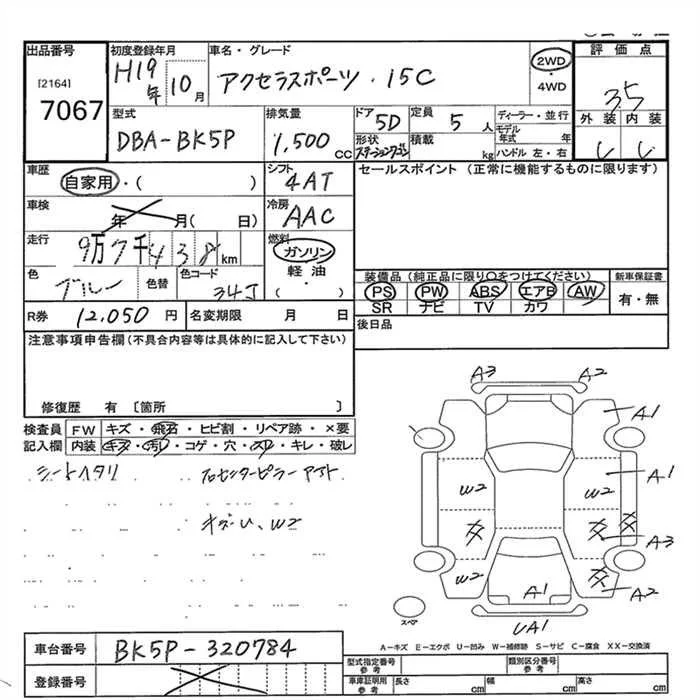 出品番号 初度登録年月 車名・グレード 評価点
[2164] H19年 10月 アクセラスポーツ・15C 2WD・4WD 3.5
7067 型式 排気量 ドア 定員 ディーラー・並行 外装 内装
DBA-BK5P 1,500cc 5D 5人 モデル年式 年
形状 積載 kg ハンドル 左・右
ステーションワゴン
車歴 シフト セールスポイント (正常に機能するものに限ります)
自家用・( ) 4AT
車検 冷房
年 月( 日) AAC
走行 燃料
9万7千438km ガソリン
色 色替 色コード 軽油 装備品(純正品に限り○をつけてください) 新車保証書
ブルー 34J ・( ) PS PW ABS エアB AW 有・無
SR ナビ TV カワ
R券 12,050円 名変期限 月 日 後日品
注意事項申告欄(不具合内容等は具体的に記入して下さい)
修復歴 有 〔箇所 〕
検査員 FW キズ・飛石・ヒビ割・リペア跡・×要
記入欄 内装 キズ・汚レ・コゲ・穴・スレ・キレ・破レ
シートヘタリ
W2
A3 A2
A1
A1
W2 W2
A3
W2 A2
A1
UA1
スペア
A-キズ E-エクボ U-凹み W-補修跡 S-サビ C-腐食 XX-交換済
車台番号 BK5P-320784 型式指定番号 類別区分番号
参考 参考
登録番号 車庫証明用 長さ cm 幅 cm 高さ cm
参考